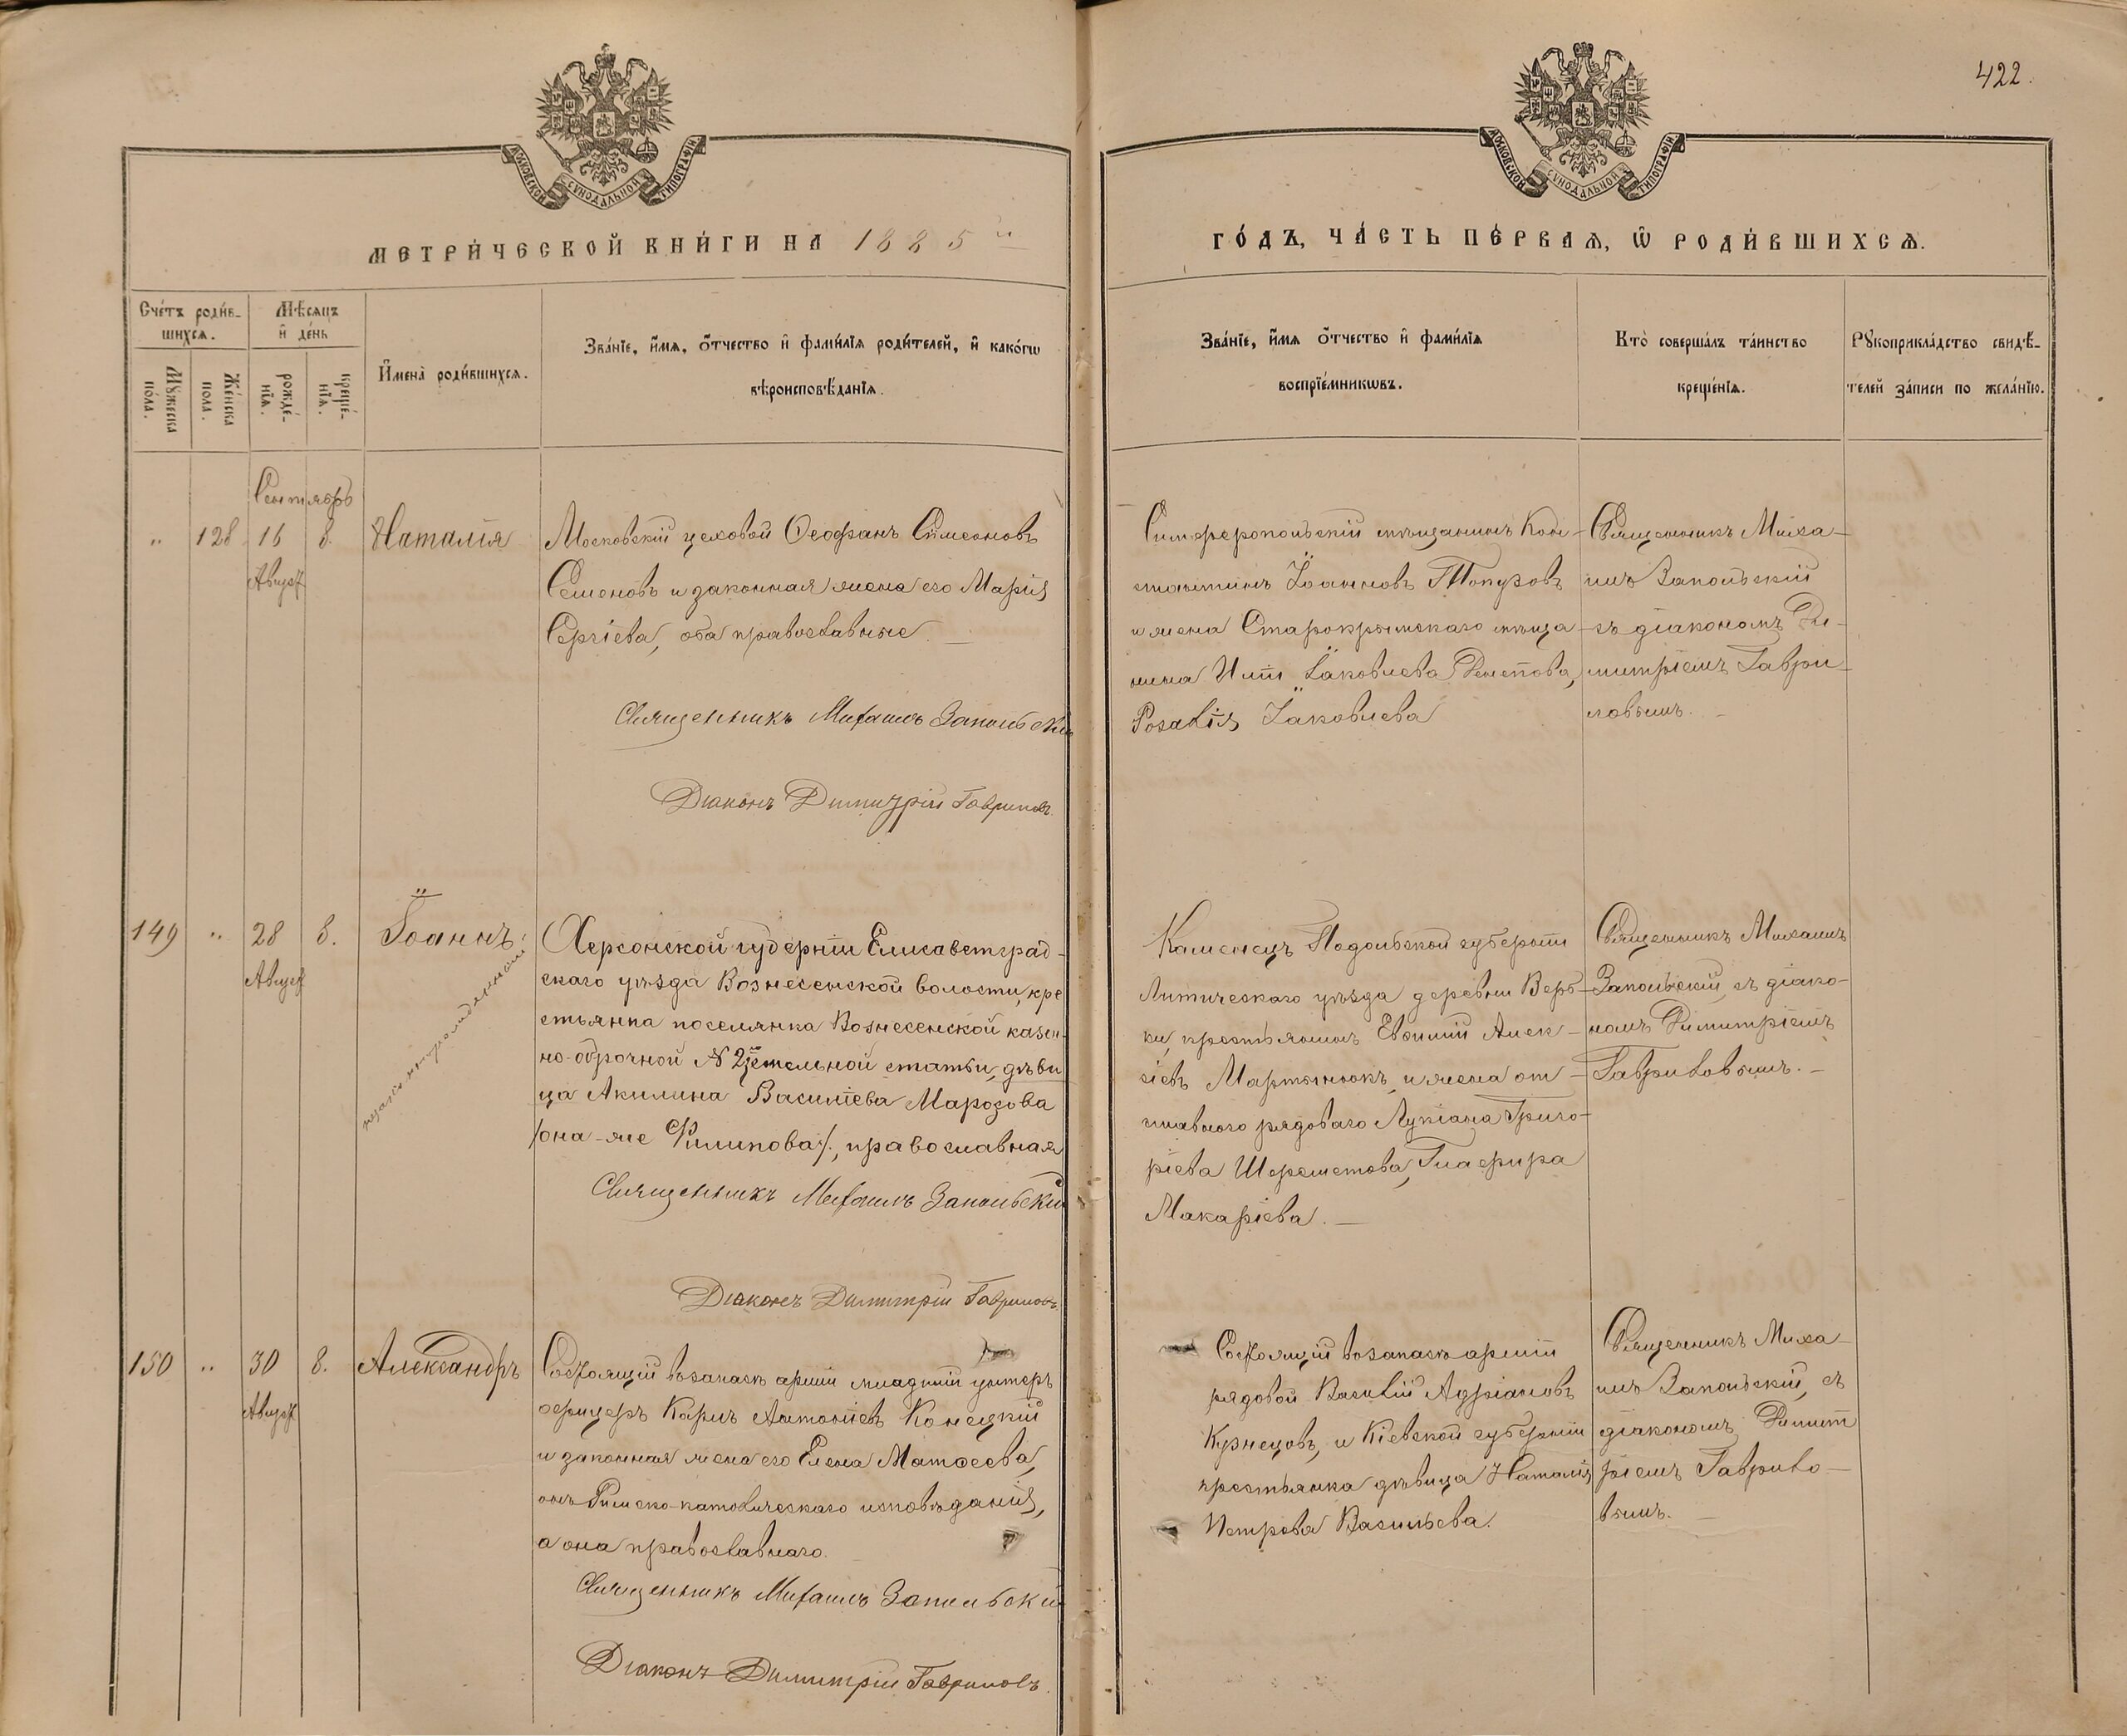 422.
МОСКОВСКОЙ СѴНОДАЛЬНОЙ ТИПОГРАФІИ
МОСКОВСКОЙ СѴНОДАЛЬНОЙ ТИПОГРАФІИ
МЕТРИ́ЧЕСКОЙ КНИ́ГИ НА 1885 й
ГО́ДЪ, ЧА́СТЬ ПЕ́РВАѦ, Ѡ҆ РОДИ́ВШИХСѦ.
Сче́тъ роди́в-
шихсѧ.
Мꙋжеска по́ла.
Же́нска пола.
Мѣ́сѧцъ
и҆ де́нь
рожде́-нїѧ.
креще́-нїѧ.
И҆мена̀ роди́вшихсѧ.
Зва́нїе, и҆́мѧ, ѻ҆́тчество и҆ фами́лїѧ роди́телей, и҆ како́гѡ
вѣроисповѣ́данїѧ.
Зва́нїе, и҆́мѧ ѻ҆́тчество и҆ фами́лїѧ
воспрїе́мникѡвъ.
Кто̀ соверша́лъ та́инство
креще́нїѧ.
Рꙋкоприкла́дство свидѣ́-
телей за́писи по жела́нїю.
Сентябрь
" 128 16 8. Наталія
Август
Московскій цеховой Ѳеофанъ Сѵмеоновъ
Семеновъ и законная жена его Марія
Сергіева, оба православные. —
Священникъ Михаилъ Запольскій
Діаконъ Димитрій Гавриловъ.
Симферопольскій мѣщанинъ Кон-
стантинъ Іоанновъ Топузовъ
и жена Старокрымскаго мѣща-
нина Иліи Іаковлева
Розалія Іаковлева
Священникъ Миха-
илъ Запольскій
съ діакономъ Ди-
митріемъ Гаври-
ловымъ. —
149 " 28 8. Іоаннъ.
Август
Херсонской губерніи Елисаветград-
скаго уѣзда Вознесенской волости, кре
стьянка поселянка Вознесенской казен-
но-оброчной № 2й земельной статьи, дѣви
ца Акилина Васильева Марозова
/она-же Филипова/, православная
Священникъ Михаилъ Запольскій
Діаконъ Димитрій Гавриловъ.
Каменецъ Подольской губерніи
Литическаго уѣзда деревни Верб-
ки, крестьянинъ Евѳимій Алек-
сіевъ Мартынюкъ, и жена от-
ставного рядоваго Лукіана Григо-
ріева Шереметова, Глафира
Макаріева. —
Священникъ Михаилъ
Запольскій, съ діако-
номъ Димитріемъ
Гавриловымъ. —
150 " 30 8. Александръ
Август
Состоящій въ запасѣ арміи младшій унтеръ
офицеръ Карлъ Антоніевъ Конецкій
и законная жена его Елена Матѳеева,
онъ Римско-католическаго исповѣданія,
а она православнаго.
Священникъ Михаилъ Запольскій
Діаконъ Димитрій Гавриловъ.
Состоящій въ запасѣ арміи
рядовой Василій Адріановъ
Кузнецовъ, и Кіевской губерніи
крестьянка дѣвица Наталія
Петрова Васильева.
Священникъ Миха-
илъ Запольскій, съ
діакономъ Димит
ріемъ Гаврило-
вымъ. —